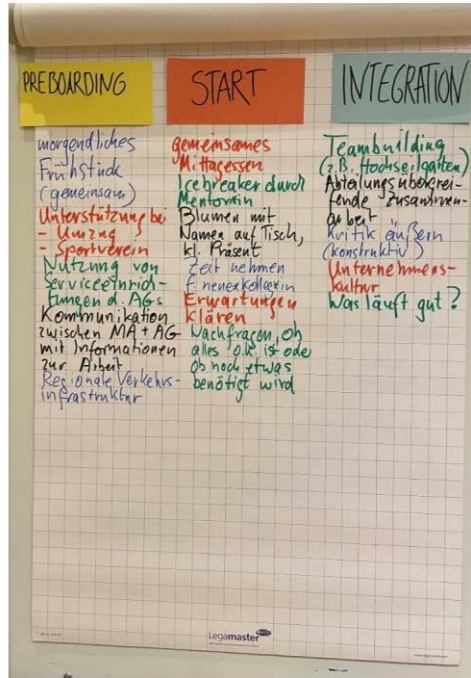 PREBOARDING
morgendliches
Frühstück
(gemeinsam)
Unterstützung bei
- Umzug
- Sportverein
Nutzung von
Serviceeinrich-
tungen d. AGs
Kommunikation
zwischen MA + AG
mit Informationen
zur Arbeit
Regionale Verkehrs-
infrastruktur
START
gemeinsames
Mittagessen
Icebreaker durch
Mentorin
Blumen mit
Namen auf Tisch,
kl. Präsent
Zeit nehmen
f. neue Kollegin
Erwartungen
klären
Nachfragen, ob
alles o.k. ist oder
ob noch etwas
benötigt wird
INTEGRATION
Teambuilding
(z.B. Hochseilgarten)
Abteilungsübergrei-
fende Zusammen-
arbeit
Kritik äußern
(konstruktiv)
Unternehmens-
kultur
Was läuft gut?
Legamaster